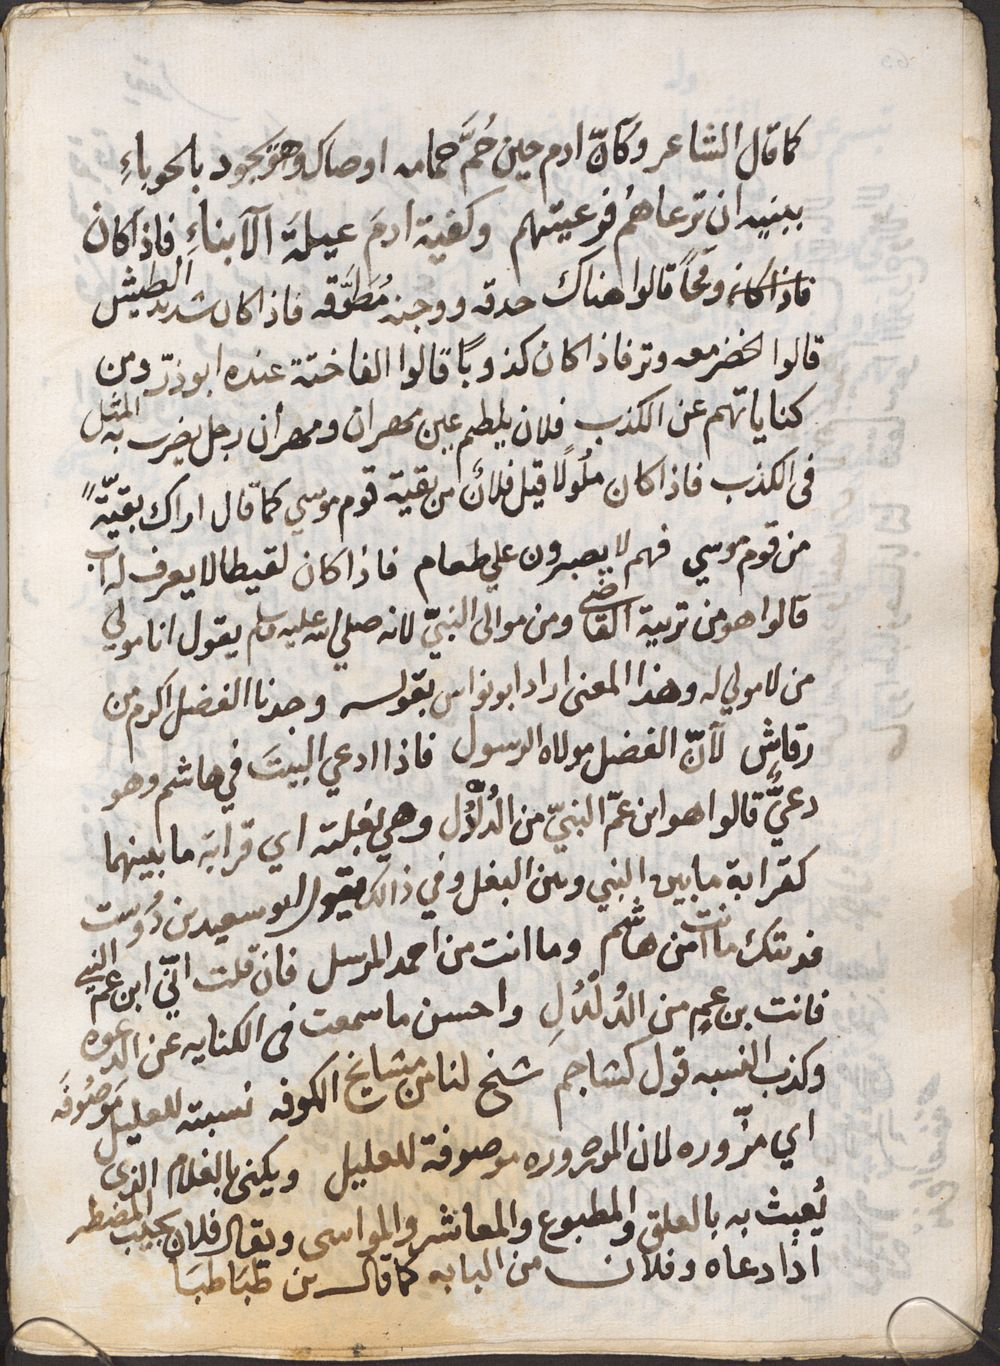 كما قال الشاعر وكأنّ ادم حين حُمَّ حمامه اوصاك وهو يجود بالحوباءِ
ببنيه ان ترعاهُم فرعيتهم وكفيت ادمَ عيلةَ الآبناءِ فاذا كان
فاذا كان وقحًا قالوا هناك حدقه ووجنه مُطَوَّقه فاذا كان شديد الطيش
قالوا لخضر معه وتر فاذا كان كذوبًا قالوا الفاختة عنده ابو ذرّ ومن
كناياتهم عن الكذب فلان يلطم عين مهران ومهران رجل يضرب به المثل
فى الكذب فاذا كان ملُولًا قيل فلان من بقية قوم موسي كما قال اراك بقيّةً
من قوم موسي فهم لا يصبرون علي طعام فاذا كان لقيطا لا يعرف له اب
قالوا هو من تربية القاضى ومن موالى النبيّ لانه صلي الله عليه وسلم يقول انا مولي
من لا مولي له وهذا المعنى اراد ابو نواس بقوله وجدنا الفضل اكرم من
رقاشٍ لآنّ الفضل مولاه الرسول فاذا ادعي البيتَ في هاشم وهو
دعيٌّ قالوا هو ابن عمّ النبيّ من الدُلْدُل وهي بغلته اي قرابة ما بينهما
كقرابة ما بين النبي وبين البغل وفي ذالك يقول ابو سعيد بن دُوست
فديتك ما انت من هاشم وما انت من احمد المرسل فان قلت انّي ابن عم النبي
فانت بن عمٍ من الدُلْدُلِ واحسن ما سمعت فى الكنايه عن الدعوه
وكذب النسبه قول كشاجم شيخ لنا من مشايخ الكوفه نسبته للعليل موصُوفَه
اي مزّوره لان المزوره موصوفة للعليل ويكنى بالغلام الذى
يُعبث به بالعلق والمطبوع والمعاشر والمواسى ويقال فلان يجيب المضطر
اذا دعاه وفلان من البابه كما قال بن طبَا طبَا